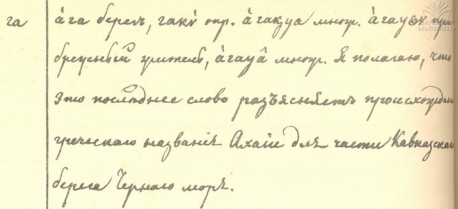 га а́га берегъ, гакы̀ опр. а́гақуа множ. а́гауоы при
брежный житель, а́гауа̂ множ. Я полагаю, что
это послѣднее слово разъясняетъ происхожден
греческаго названія Ахаіи для части Кавказска
берега Чернаго моря.